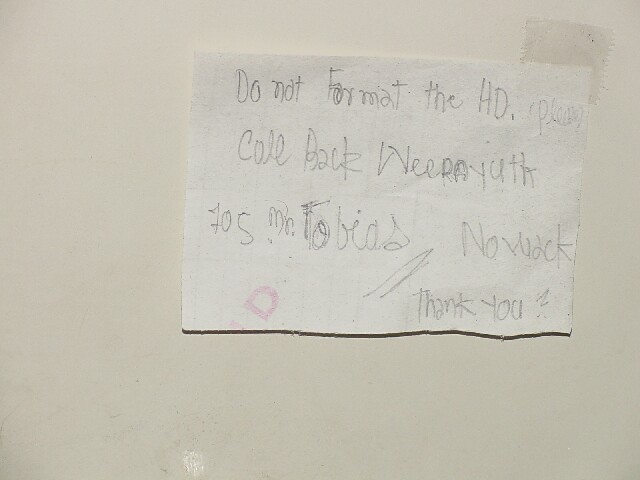 Do not Format the HD. (please)
Call Back WEERAYUTH
705 Mr. Tobias Nowack
Thank you